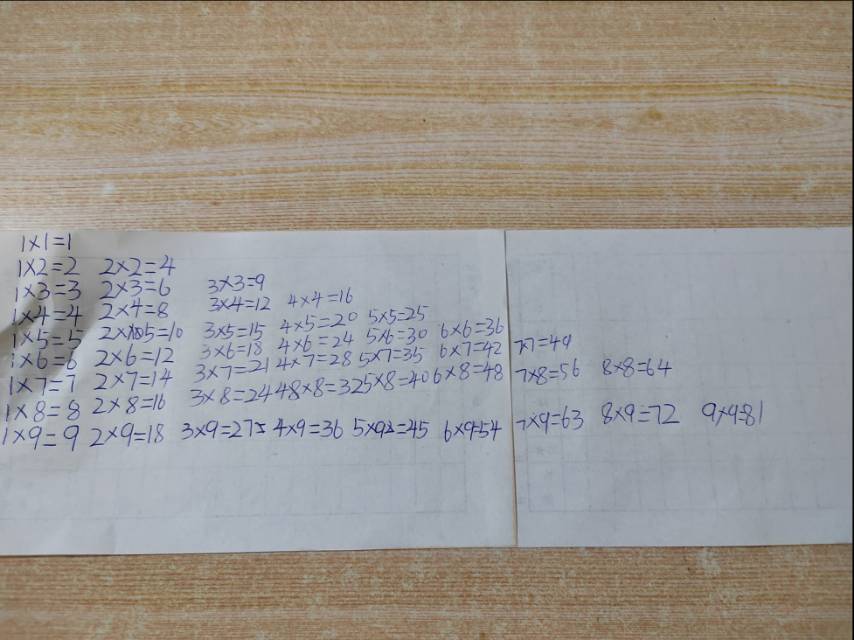 1×1=1
1×2=2 2×2=4
1×3=3 2×3=6 3×3=9
1×4=4 2×4=8 3×4=12 4×4=16
1×5=5 2×5=10 3×5=15 4×5=20 5×5=25
1×6=6 2×6=12 3×6=18 4×6=24 5×6=30 6×6=36
1×7=7 2×7=14 3×7=21 4×7=28 5×7=35 6×7=42 7×7=49
1×8=8 2×8=16 3×8=24 48×8=32 5×8=40 6×8=48 7×8=56 8×8=64
1×9=9 2×9=18 3×9=27 4×9=36 5×9=45 6×9=54 7×9=63 8×9=72 9×9=81